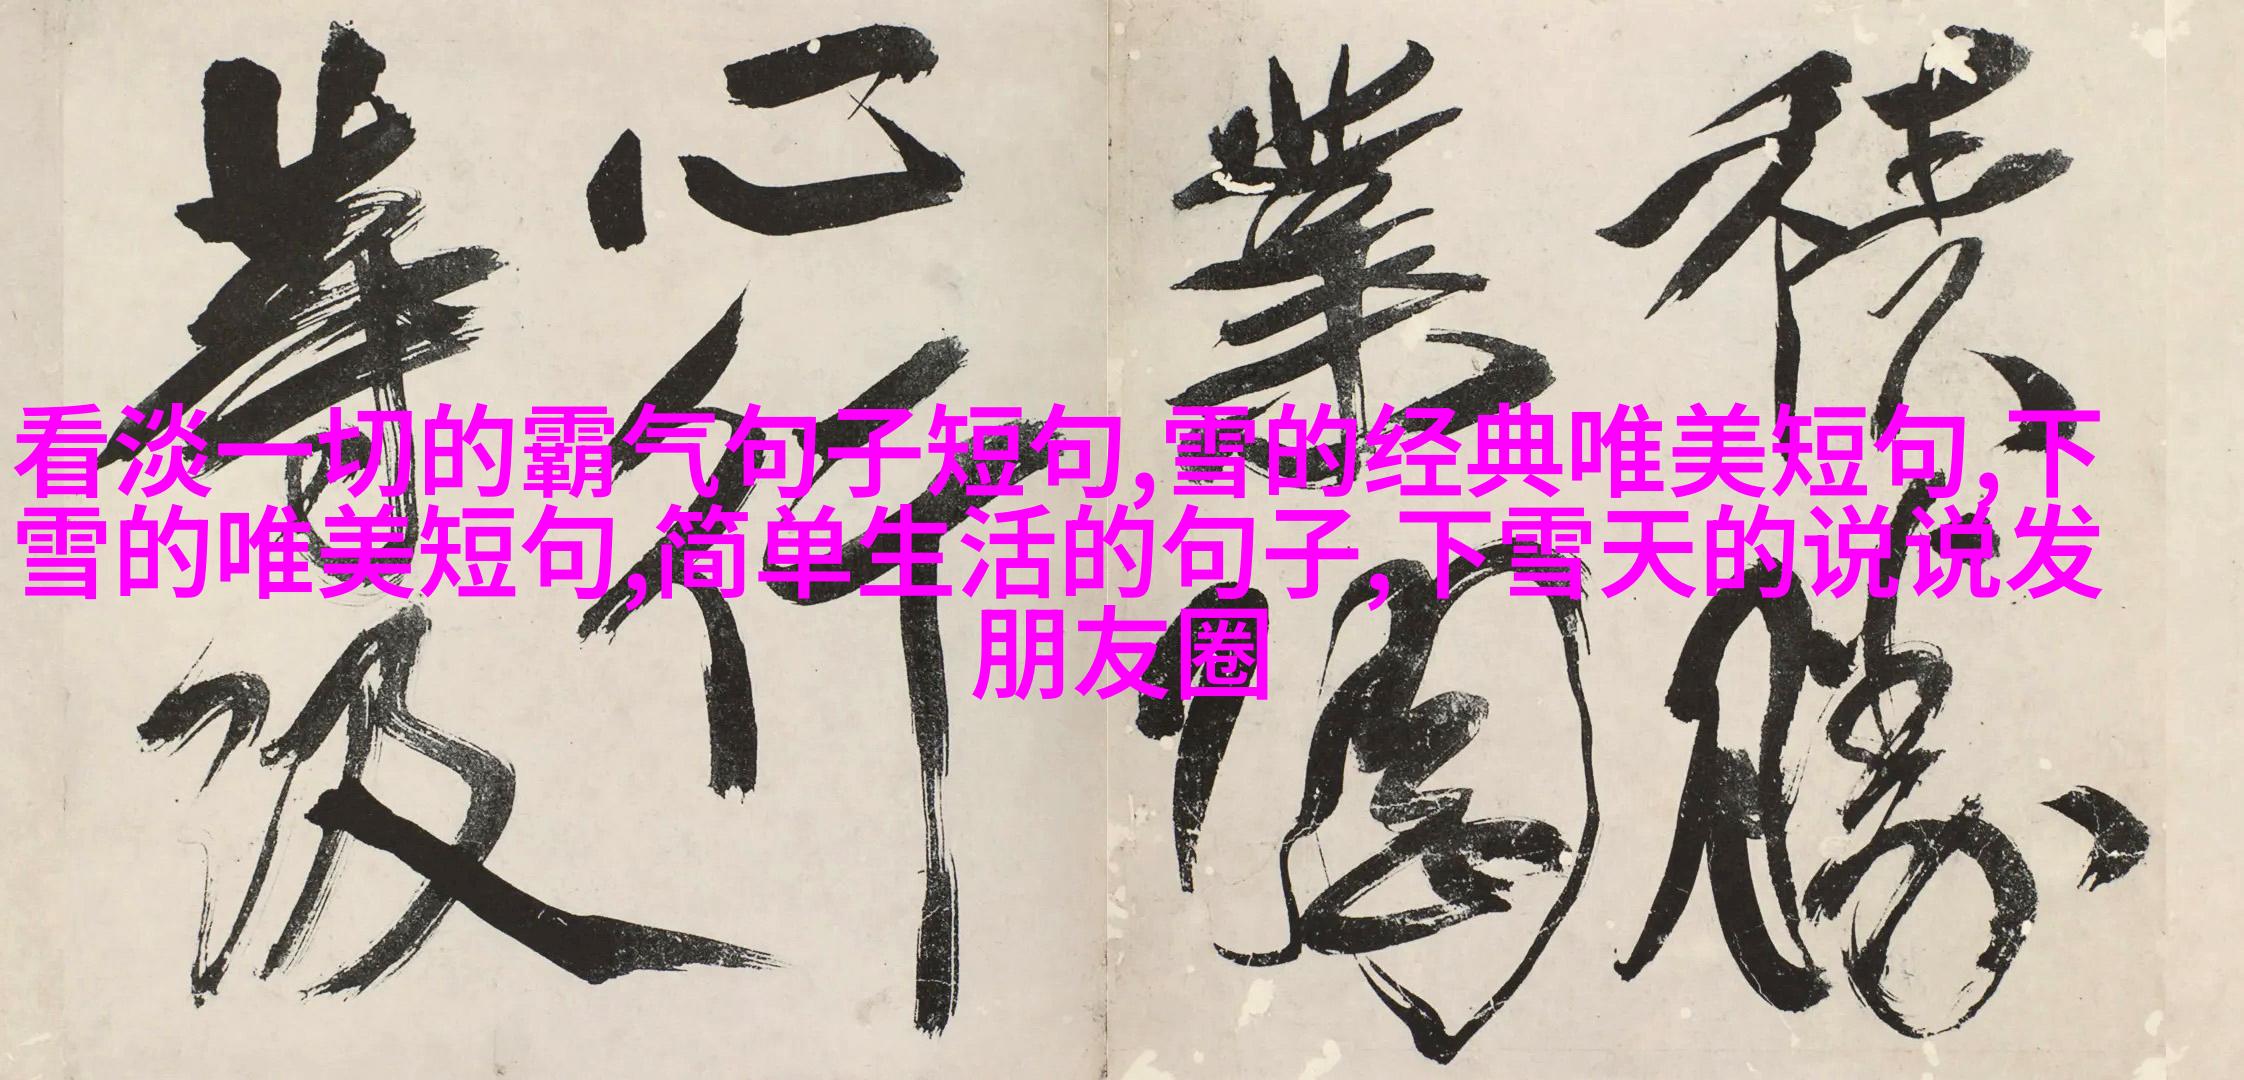 看淡一切的霸气句子短句,雪的经典唯美短句,下
雪的唯美短句,简单生活的句子,下雪天的说说发
朋友圈
積勝
業
心行
及